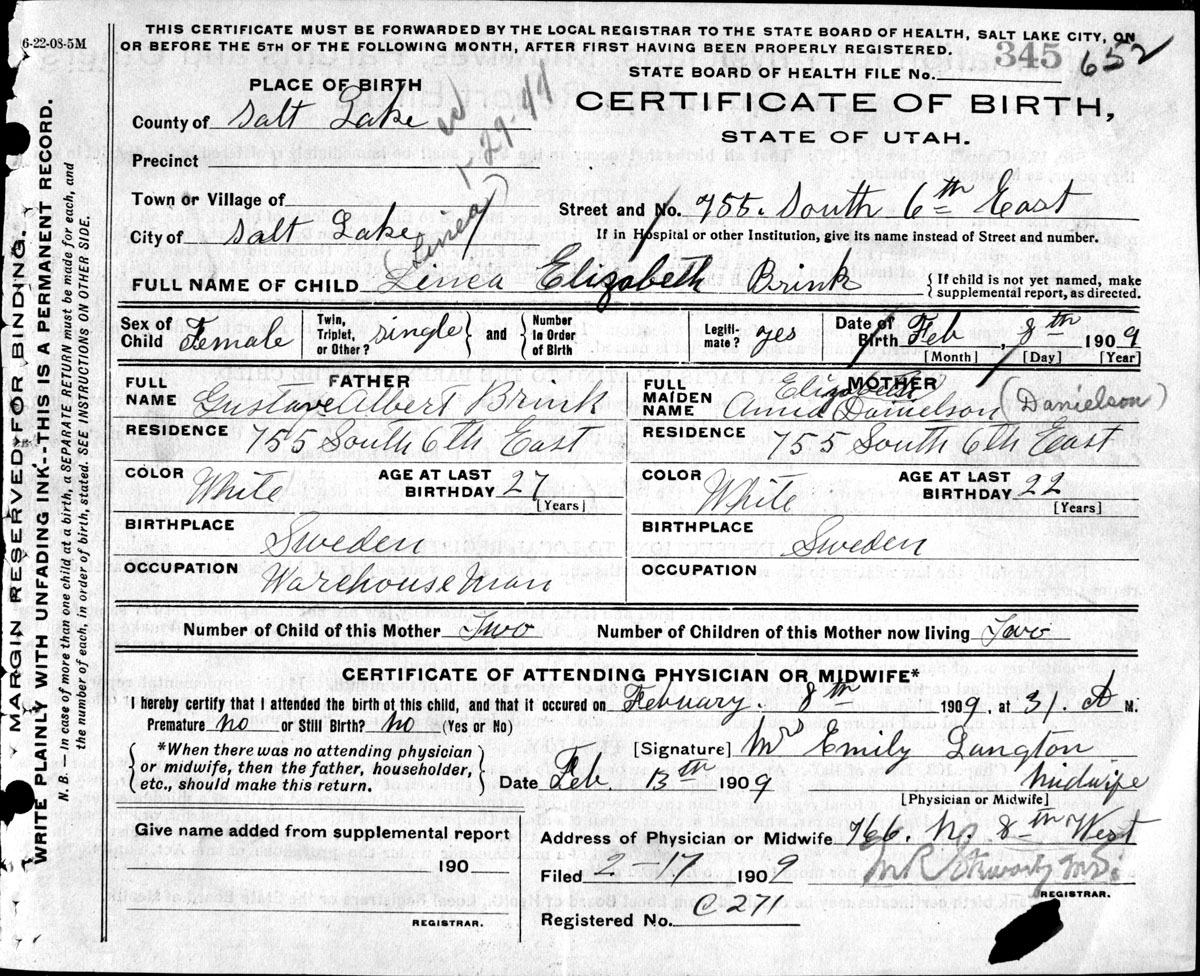 THIS CERTIFICATE MUST BE FORWARDED BY THE LOCAL REGISTRAR TO THE STATE BOARD OF HEALTH, SALT LAKE CITY, ON
OR BEFORE THE 5TH OF THE FOLLOWING MONTH, AFTER FIRST HAVING BEEN PROPERLY REGISTERED.
6-22-08-5M
345 652
STATE BOARD OF HEALTH FILE No.
PLACE OF BIRTH
CERTIFICATE OF BIRTH,
STATE OF UTAH.
County of Salt Lake
1-29-44
Precinct
Town or Village of
Street and No. 755. South 6th East
City of Salt Lake
If in Hospital or other Institution, give its name instead of Street and number.
(Linea)
FULL NAME OF CHILD Linea Elizabeth Brink
{ If child is not yet named, make
supplemental report, as directed.
Sex of Child Female
Twin, Triplet, or Other? single } and { Number in Order of Birth
Legiti-mate? yes
Date of Birth Feb, 8th 1909
[Month] [Day] [Year]
FATHER
FULL NAME Gustave Albert Brink
MOTHER
FULL MAIDEN NAME Anna Elizabeth Danielson (Danielson)
RESIDENCE 755 South 6th East
RESIDENCE 755 South 6th East
COLOR White AGE AT LAST BIRTHDAY 27 [Years]
COLOR White AGE AT LAST BIRTHDAY 22 [Years]
BIRTHPLACE Sweden
BIRTHPLACE Sweden
OCCUPATION Warehouseman
OCCUPATION
Number of Child of this Mother Two Number of Children of this Mother now living Two
CERTIFICATE OF ATTENDING PHYSICIAN OR MIDWIFE*
I hereby certify that I attended the birth of this child, and that it occured on February. 8th 1909, at 31. A M.
Premature No or Still Birth? No (Yes or No)
{ *When there was no attending physician
or midwife, then the father, householder,
etc., should make this return. }
[Signature] Mrs Emily Langton
Date Feb. 13th 1909 Midwife
[Physician or Midwife]
Give name added from supplemental report
190
REGISTRAR.
Address of Physician or Midwife 766. No. 8th West
Filed 2 17 1909
REGISTRAR.
Registered No. C271
MARGIN RESERVED FOR BINDING.
WRITE PLAINLY WITH UNFADING INK--THIS IS A PERMANENT RECORD.
N. B. — In case of more than one child at a birth, a SEPARATE RETURN must be made for each, and
the number of each, in order of birth, stated. SEE INSTRUCTIONS ON OTHER SIDE.